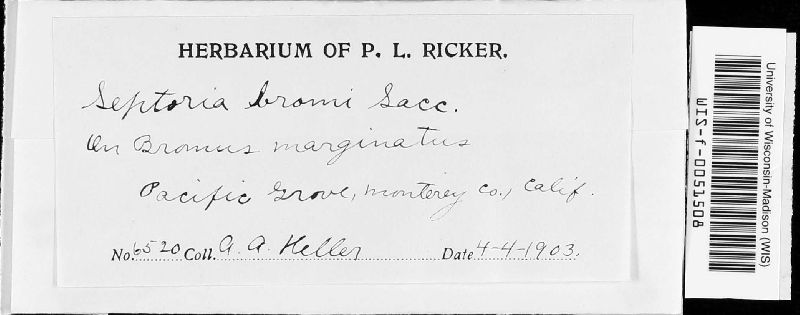 HERBARIUM OF P. L. RICKER.
Septoria bromi Sacc.
On Bromus marginatus
Pacific Grove, Monterey Co., Calif.
No. 6520 Coll. A. A. Heller Date 4-4-1903.
University of Wisconsin-Madison (WIS)
WIS-f-0051508